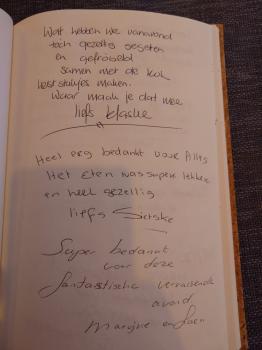 Wat hebben we vanavond
toch gezellig gegeten
en gefröbeld
samen met de kook
kerststukjes maken.
Waar maak je dat mee
liefs klaske
Heel erg bedankt voor Alles
Het eten was super lekker
en heel gezellig
liefs Sietske
Super bedankt
voor deze
fantastische verrassende
avond
Marijne en